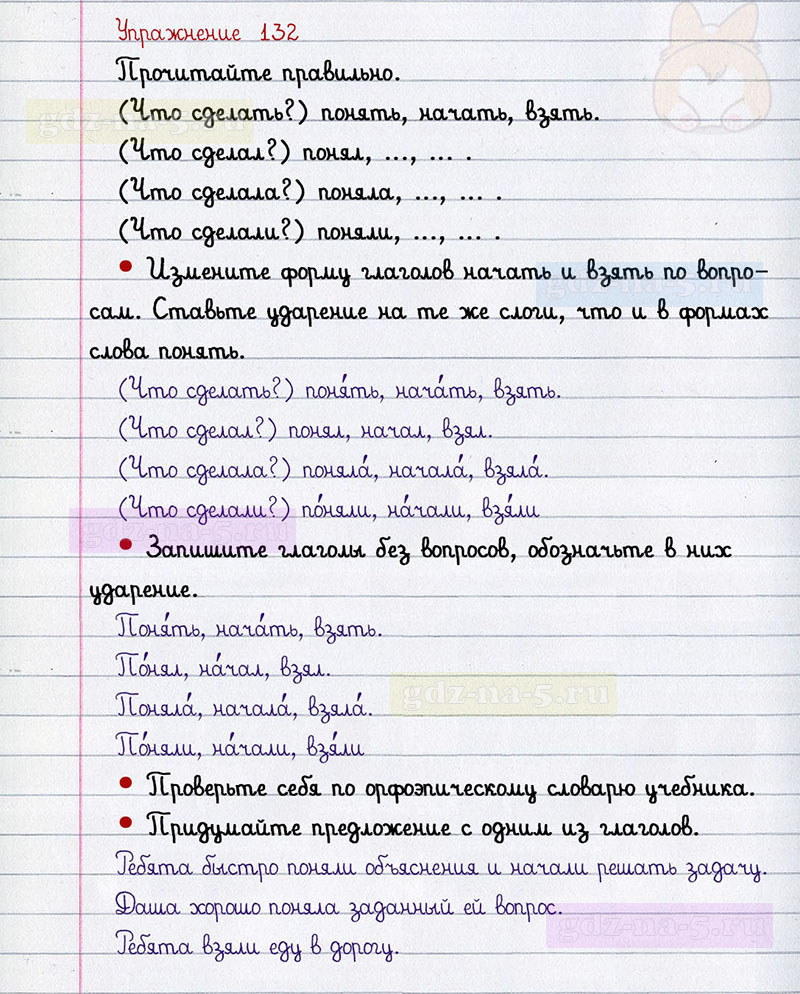 Упражнение 132
Прочитайте правильно.
(Что сделать?) понять, начать, взять.
(Что сделал?) понял, ..., ... .
(Что сделала?) поняла, ..., ... .
(Что сделали?) поняли, ..., ... .
• Измените форму глаголов начать и взять по вопро-
сам. Ставьте ударение на те же слоги, что и в формах
слова понять.
(Что сделать?) поня́ть, нача́ть, взять.
(Что сделал?) понял, начал, взял.
(Что сделала?) поняла́, начала́, взяла́.
(Что сделали?) по́няли, на́чали, взя́ли
• Запишите глаголы без вопросов, обозначьте в них
ударение.
Поня́ть, нача́ть, взять.
По́нял, на́чал, взял.
Поняла́, начала́, взяла́.
По́няли, на́чали, взя́ли
• Проверьте себя по орфоэпическому словарю учебника.
• Придумайте предложение с одним из глаголов.
Ребята быстро поняли объяснения и начали решать задачу.
Даша хорошо поняла заданный ей вопрос.
Ребята взяли еду в дорогу.
gdz-na-5.ru
gdz-na-5.ru
gdz-na-5.ru
gdz-na-5.ru
gdz-na-5.ru